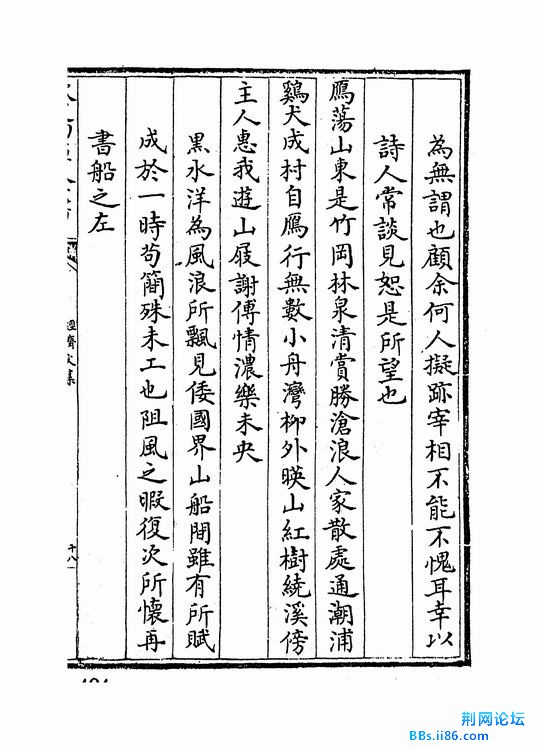 為無謂也顧余何人擬跡宰相不能不愧耳幸以
詩人常談見恕是所望也
鴈蕩山東是竹岡林泉清賞勝滄浪人家散處通潮浦
鷄犬成村自鴈行無數小舟灣柳外暎山紅樹繞溪傍
主人惠我遊山屐謝傅情濃樂未央
黒水洋為風浪所飄見倭國界山船閒雖有所賦
成於一時苟簡殊未工也阻風之暇復次所懷再
書船之左
經濟文集
十八
荆网论坛
BBs.ii86.com